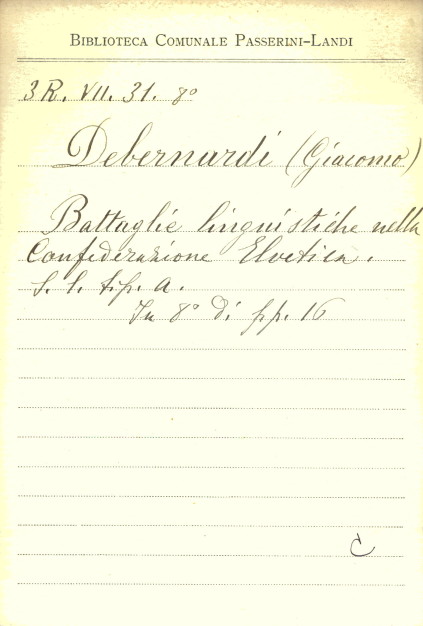 BIBLIOTECA COMUNALE PASSERINI-LANDI
3R. VII. 31. 8°
Debernardi (Giacomo)
Battaglie linguistiche nella
Confederazione Elvetica.
S. l. tip. a.
In 8° di pp. 16
C